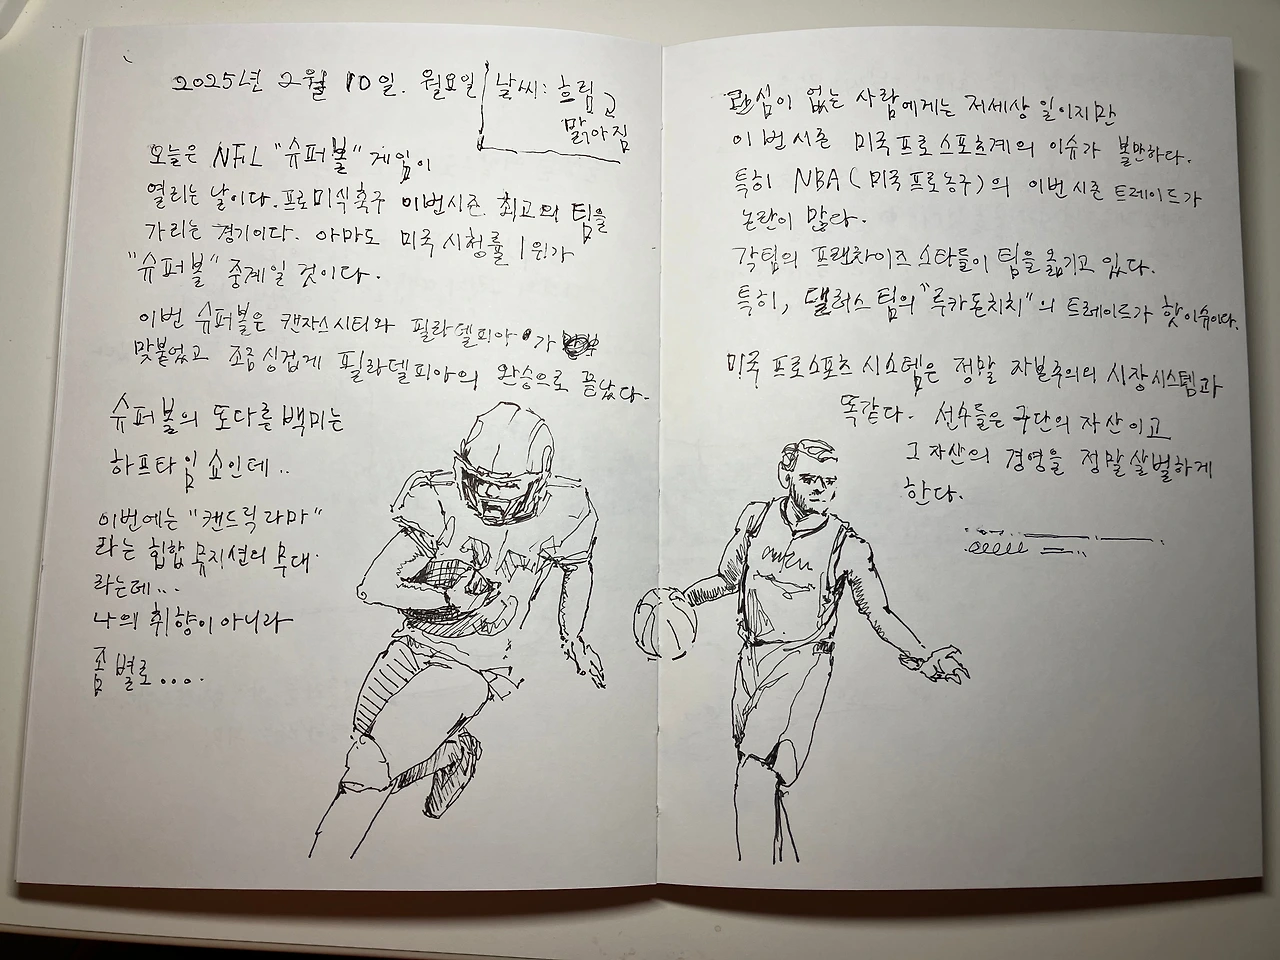 2025년 2월 10일. 월요일 날씨: 흐림고
맑아짐
오늘은 NFL "슈퍼볼" 게임이
열리는 날이다. 프로미식축구 이번시즌 최고의 팀을
가리는 경기이다. 아마도 미국 시청률 1위가
"슈퍼볼" 중계일 것이다.
이번 슈퍼볼은 캔자스시티와 필라델피아가
맞붙었고 조금 싱겁게 필라델피아의 완승으로 끝났다.
슈퍼볼의 또다른 백미는
하프타임 쇼인데..
이번에는 "캔드릭 라마"
라는 힙합 뮤지션의 무대
라는데...
나의 취향이 아니라
좀 별로....
관심이 없는 사람에게는 저세상 일이지만
이번시즌 미국프로스포츠계의 이슈가 볼만하다.
특히 NBA (미국프로농구)의 이번시즌 트레이드가
논란이 많다.
각팀의 프랜차이즈 스타들이 팀을 옮기고 있다.
특히, 댈러스 팀의 "루카돈치치"의 트레이드가 핫이슈이다.
미국 프로스포츠 시스템은 정말 자본주의의 시장시스템과
똑같다. 선수들은 구단의 자산이고
그 자산의 경영을 정말 살벌하게
한다.